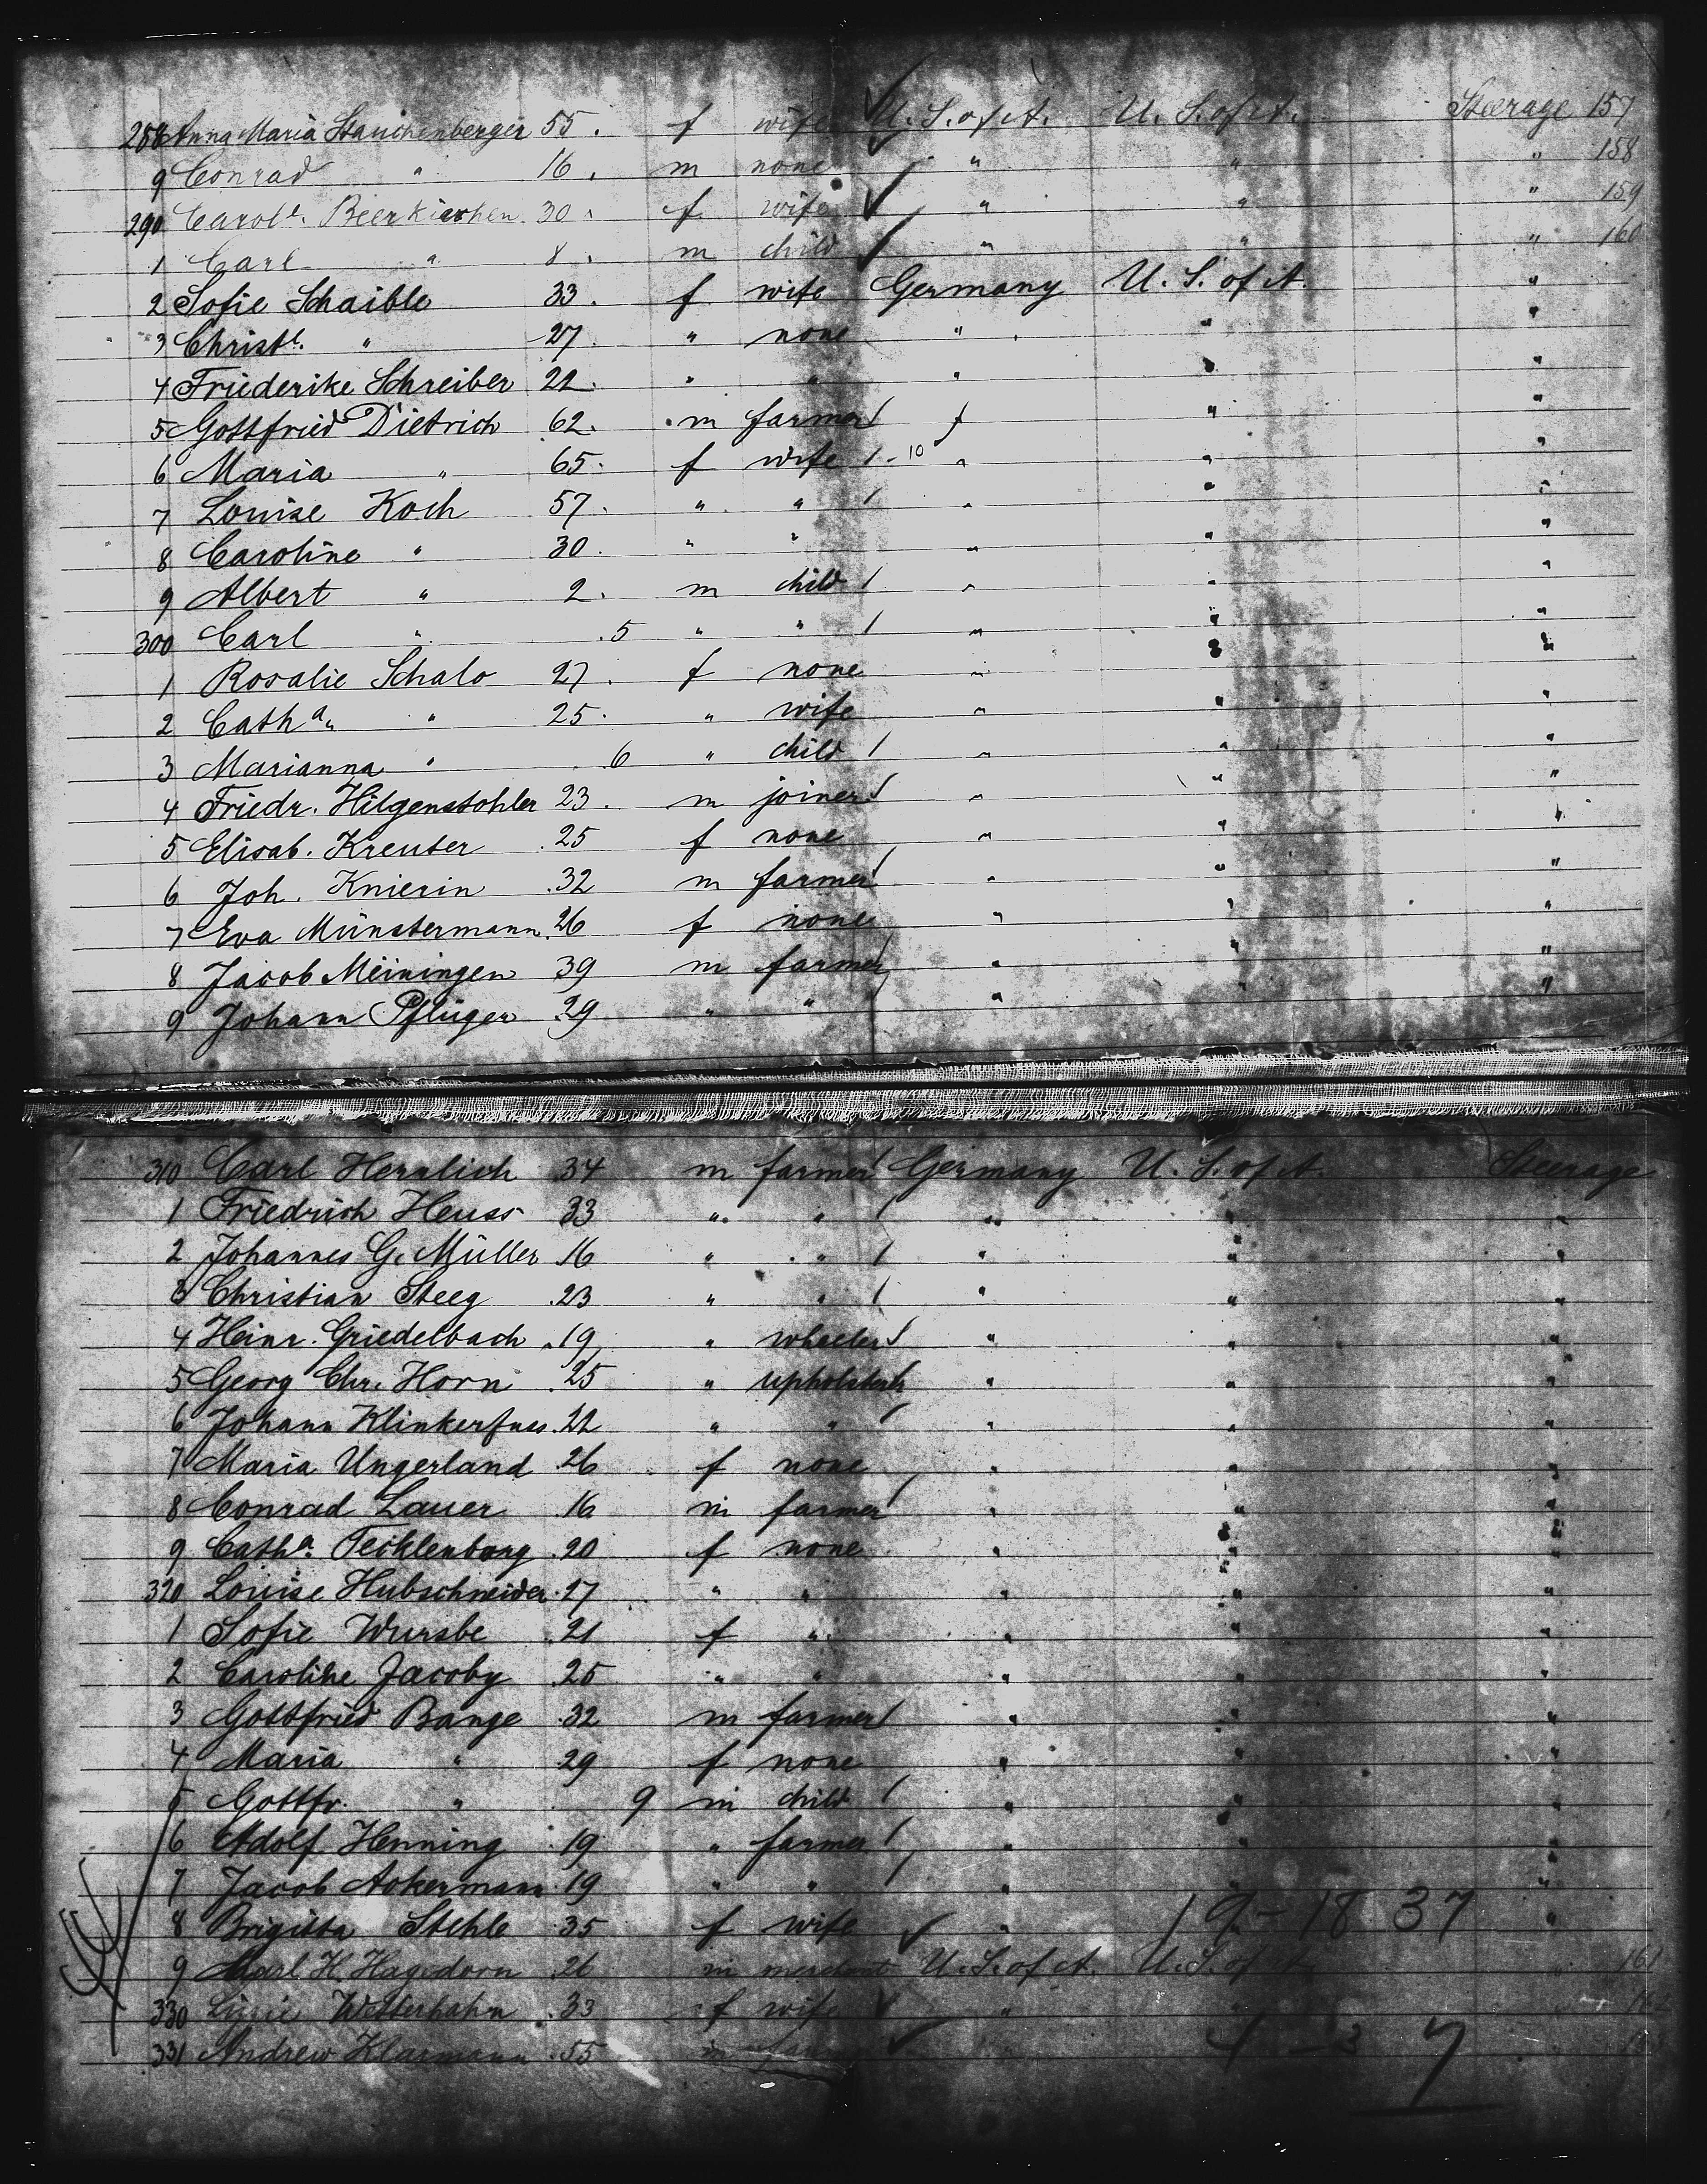 288 Anna Maria Stauchenberger 55. f wife U. S. of A. U. S. of A. Steerage 157
9 Conrad " 16. m none " " " 158
290 Carole. Beerkirchen 30. f wife " " " 159
1 Carl " 8. m child " " " 160
2 Sofie Schaible 33. f wife Germany U. S. of A. "
3 Christe. " 27. " none " " "
4 Friederike Schreiber 22. " " " " "
5 Gottfried Dietrich 62. m farmer " "
6 Maria " 65. f wife 10 " " "
7 Louise Koch 57. " " " " "
8 Caroline " 30. " " " " "
9 Albert " 2. m child " " "
300 Carl " .5 " " " " "
1 Rosalie Schalo 27. f none " " "
2 Catha. " 25. " wife " " "
3 Marianna " .6 " child " " "
4 Friedr. Hilgenstohler 23. m joiner " " "
5 Elisab. Kreuter .25 f none " " "
6 Joh. Knierin .32 m farmer " " "
7 Eva Münstermann .26 f none " " "
8 Jacob Meiningen 39 m farmer " " "
9 Johann Pflüger .29 " " " " "
310 Carl Herrlich .34 m farmer Germany U. S. of A. Steerage
1 Friedrich Heuss 33 " " " " "
2 Johannes G. Müller .16 " " " " "
3 Christian Steeg .23 " " " " "
4 Heinr. Griedelbach .19 " wheeler " " "
5 Georg Chr. Horn .25 " upholster " " "
6 Johann Klinkerfuss .22 " " " " "
7 Maria Ungerland .26 f none " " "
8 Conrad Lauer .16 m farmer " " "
9 Catha. Tecklenborg .20 f none " " "
320 Louise Hubschneider .17 " " " " "
1 Sofie Wursbe .21 f " " " "
2 Caroline Jacoby .25 " " " " "
3 Gottfried Bange .32 m farmer " " "
4 Maria " .29 f none " " "
5 Gottfr. " 9 m child " " "
6 Adolf Henning .19 " farmer " " "
7 Jacob Ackermann .19 " " " " "
8 Brigitta Stehle .35 f wife " 19 - 18 37 "
9 Carl H. Hagedorn .26 m merchant U. S. of A. U. S. of A. " 161
330 Lizzie Wetterhahn .33 f wife " " "
331 Andrew Klarmann .55 m " 4 - 3 7 "